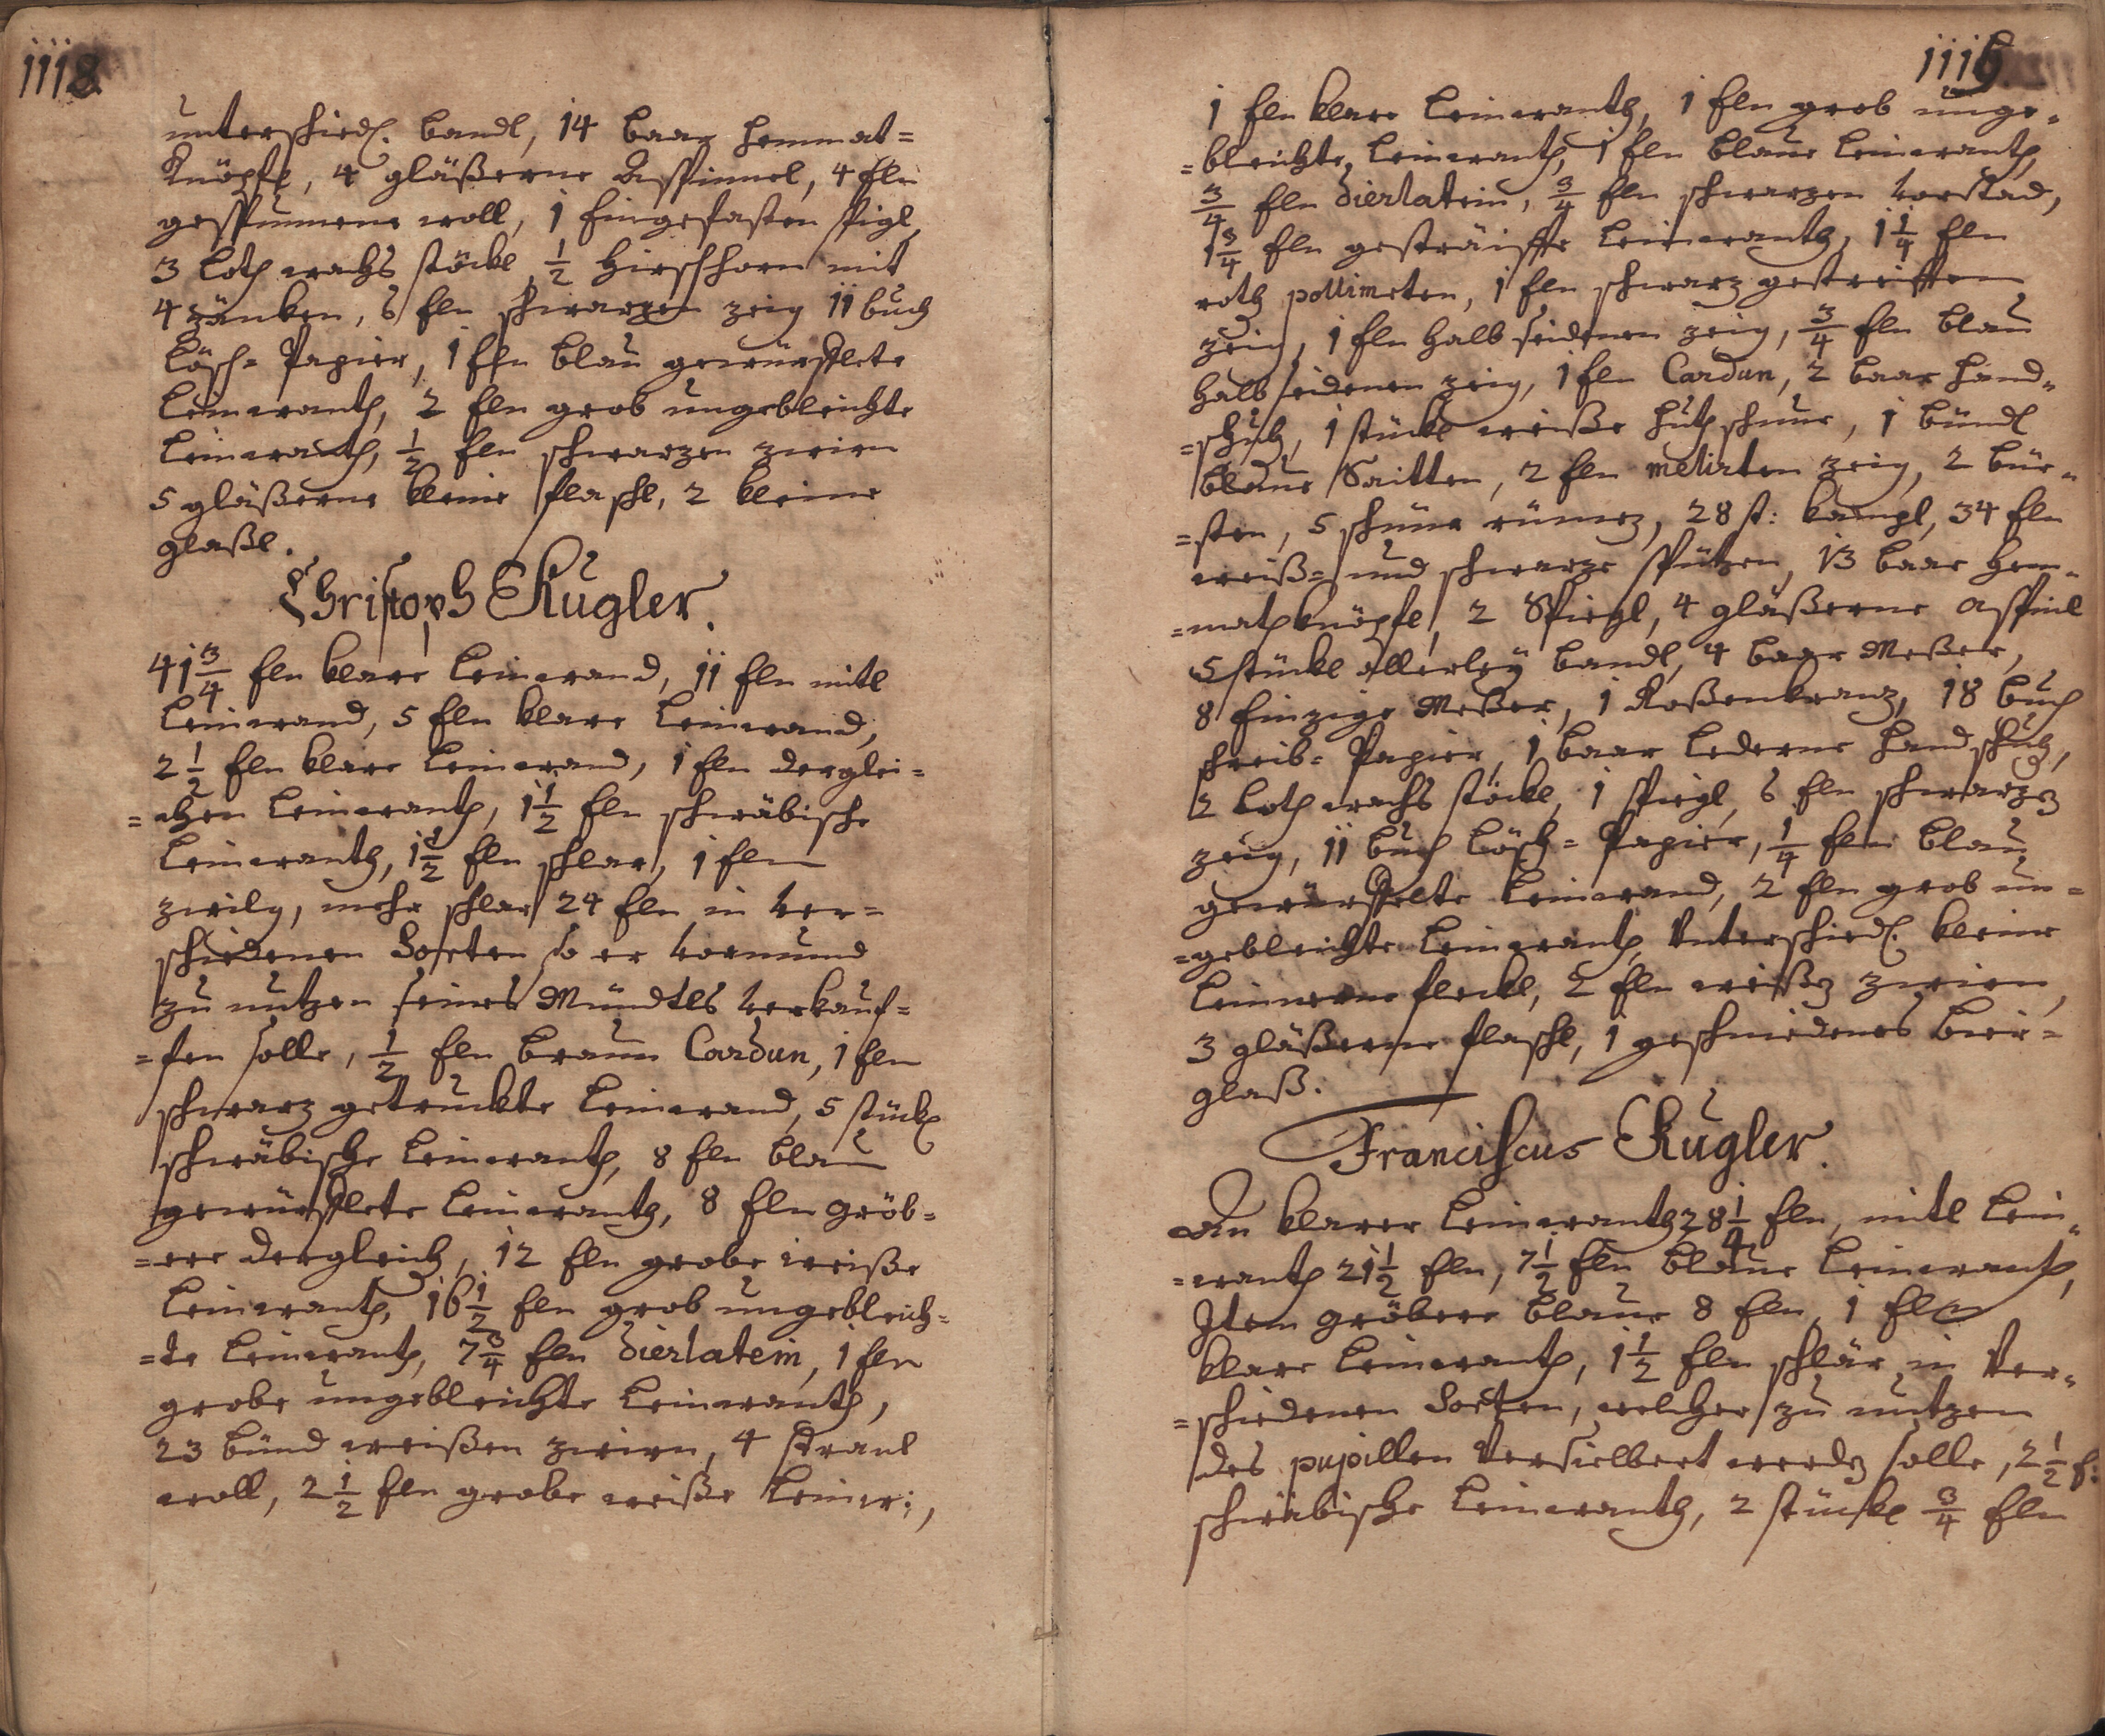 1118
unterschiedl. bandl, 14 baar hemmat=
Knöpfl, 4 gläßerne Asspinnel, 4 Eln
gespunnene woll, 1 Eingefasten spigl,
3 loth wachs stöckl, 1/2 Hirschhorn mit
4 Zänken, 6 Eln schwarzen zeig 11 buch
Lösch= Papier, 1 Eln blau gewürflete
Leinwanth, 2 Eln grob ungebleichte
Leinwanth, 1/2 Eln schwarzen zwirn
5 gläßerne kleine flaschl, 2 kleine
glaßl.
Christoph Kugler.
41 3/4 Eln klare Leinwand, 11 Eln mitl
Leinwand, 5 Eln klare Leinwand,
2 1/2 Eln klare Leinwand, 1 Eln derglei=
=chen Leinwanth, 1 1/2 Eln schwäbische
Leinwanth, 1 1/2 Eln schlar, 1 Eln
zwilg, mehr schlar 24 Eln in ver=
schiedenen Sorten so er vormund
zu nutzen seines Mündtls verkauf=
=fen solle, 1/2 Eln braun Cardun, 1 Eln
schwarz getruckte Leinwand, 5 stückl
schwäbische Leinwanth, 8 Eln blau
gewürflete Leinwanth, 8 Eln gröb=
=ere dergleich, 12 Eln grobe weiße
Leinwanth, 16 1/2 Eln grob ungebleich=
=te Leinwanth, 7 3/4 Eln dierlatein, 1 Eln
grobe ungebleichte Leinwanth,
23 bünd weißen zwirn, 4 straul
woll, 2 1/2 Eln grobe weiße Leinw:,
1 Eln klare Leinwanth, 1 Eln grob unge=
=bleichte Leinwanth, 1 Eln blaue Leinwanth,
3/4 Eln dierlatein, 3/4 Eln schwarzen vorstad,
1 3/4 Eln gesträiffte Leinwanth, 1 1/4 Eln
roth pollimeten, 1 Eln schwarz gestreifften
zeig, 1 Eln halb seidenen zeig, 3/4 Eln blau
halb seidenen zeig, 1 Eln Cardun, 2 baar hand=
=schuh, 1 stückl weiße huthschnur, 1 bündl
blaue Saitten, 2 Eln melirten zeig, 2 bür=
=sten, 5 schnür 28 st: kampl, 34 Eln
weiß= und schwarze spützen, 13 baar hem=
=mathknöpfl, 2 Spiegl, 4 gläßerne Aspinl
5 stückl allerley bandl, 4 baar Meßer,
8 Einzige Meßer, 1 Roßenkranz, 18 buch
schreib= Papier, 1 baar lederne handschuh,
2 loth wachs stöckl, 1 spiegl, 6 Eln schwarzen
zeig, 11 buch Lösch= Papier, 1/4 Eln blau
gewürffelte Leinwand, 2 Eln grob un=
=gebleichte Leinwanth, Unterschiedl. kleine
Leinwene fleckl, 2 Eln weißen zwirn,
3 gläßerne flaschl, 1 geschniedenes bier=
glaß.
Franciscus Kugler.
An klarer Leinwanth 28 1/4 Eln, mitl Lein=
=wanth 21 1/2 Eln, 7 1/2 Eln blaue Leinwanth,
Item gröbere blaue 8 Eln, 1 Eln
klare Leinwanth, 1 1/2 Eln schlär in Ver=
=schiedenen Sorten, welcher zu nutzen
des pupillen Versielbert werden solle, 2 1/2 E:
schwäbische Leinwanth, 2 stückl 3/4 Eln